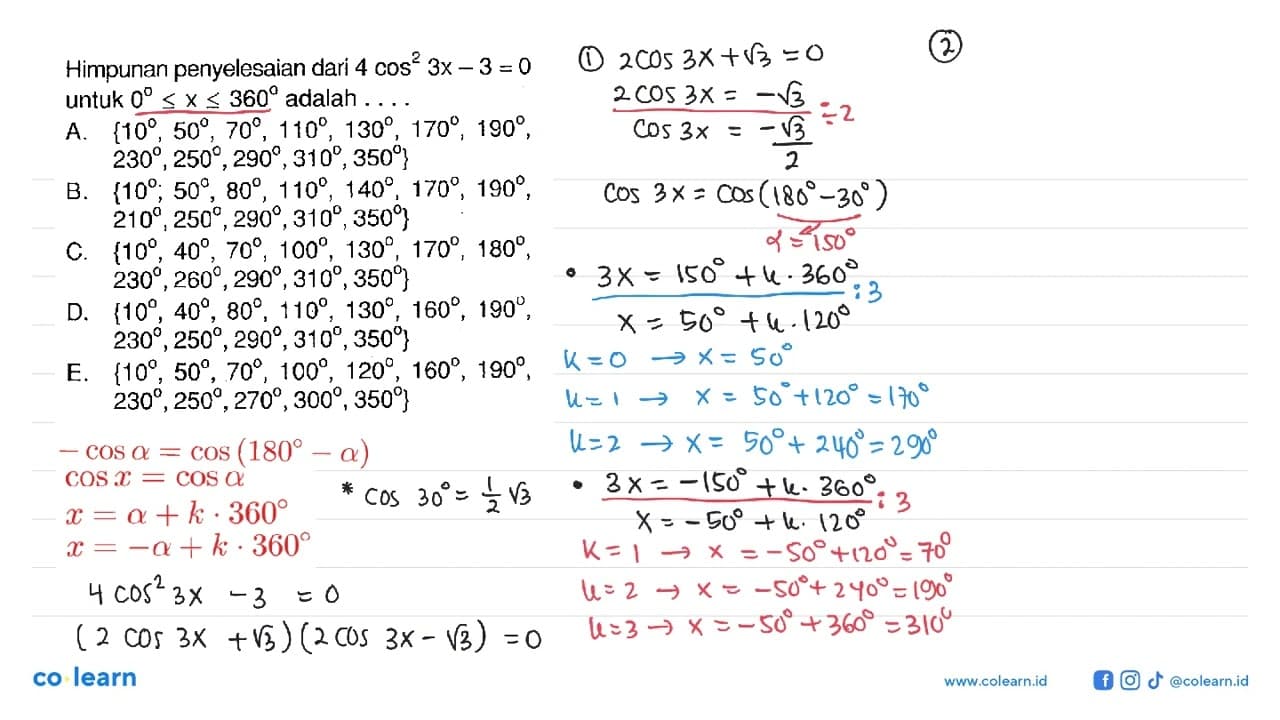 Himpunan penyelesaian dari 4 cos² 3x – 3 = 0
untuk 0° ≤ x ≤ 360° adalah . . . .
A. {10°, 50°, 70°, 110°, 130°, 170°, 190°,
230°, 250°, 290°, 310°, 350°}
B. {10°; 50°, 80°, 110°, 140°, 170°, 190°,
210°, 250°, 290°, 310°, 350°}
C. {10°, 40°, 70°, 100°, 130°, 170°, 180°,
230°, 260°, 290°, 310°, 350°}
D. {10°, 40°, 80°, 110°, 130°, 160°, 190°,
230°, 250°, 290°, 310°, 350°}
E. {10°, 50°, 70°, 100°, 120°, 160°, 190°,
230°, 250°, 270°, 300°, 350°}
– cos α = cos (180° – α)
cos x = cos α
x = α + k · 360°
x = –α + k · 360°
* cos 30° = 1/2 √3
4 cos² 3x – 3 = 0
(2 cos 3x + √3)(2 cos 3x – √3) = 0
① 2cos 3x + √3 = 0
2 cos 3x = –√3
÷2
cos 3x = –√3/2
cos 3x = cos(180° – 30°)
α = 150°
• 3x = 150° + k · 360°
:3
x = 50° + k · 120°
k = 0 → x = 50°
k = 1 → x = 50° + 120° = 170°
k = 2 → x = 50° + 240° = 290°
• 3x = –150° + k · 360°
:3
x = –50° + k · 120°
k = 1 → x = –50° + 120° = 70°
k = 2 → x = –50° + 240° = 190°
k = 3 → x = –50° + 360° = 310°
②
co·learn
www.colearn.id
@colearn.id